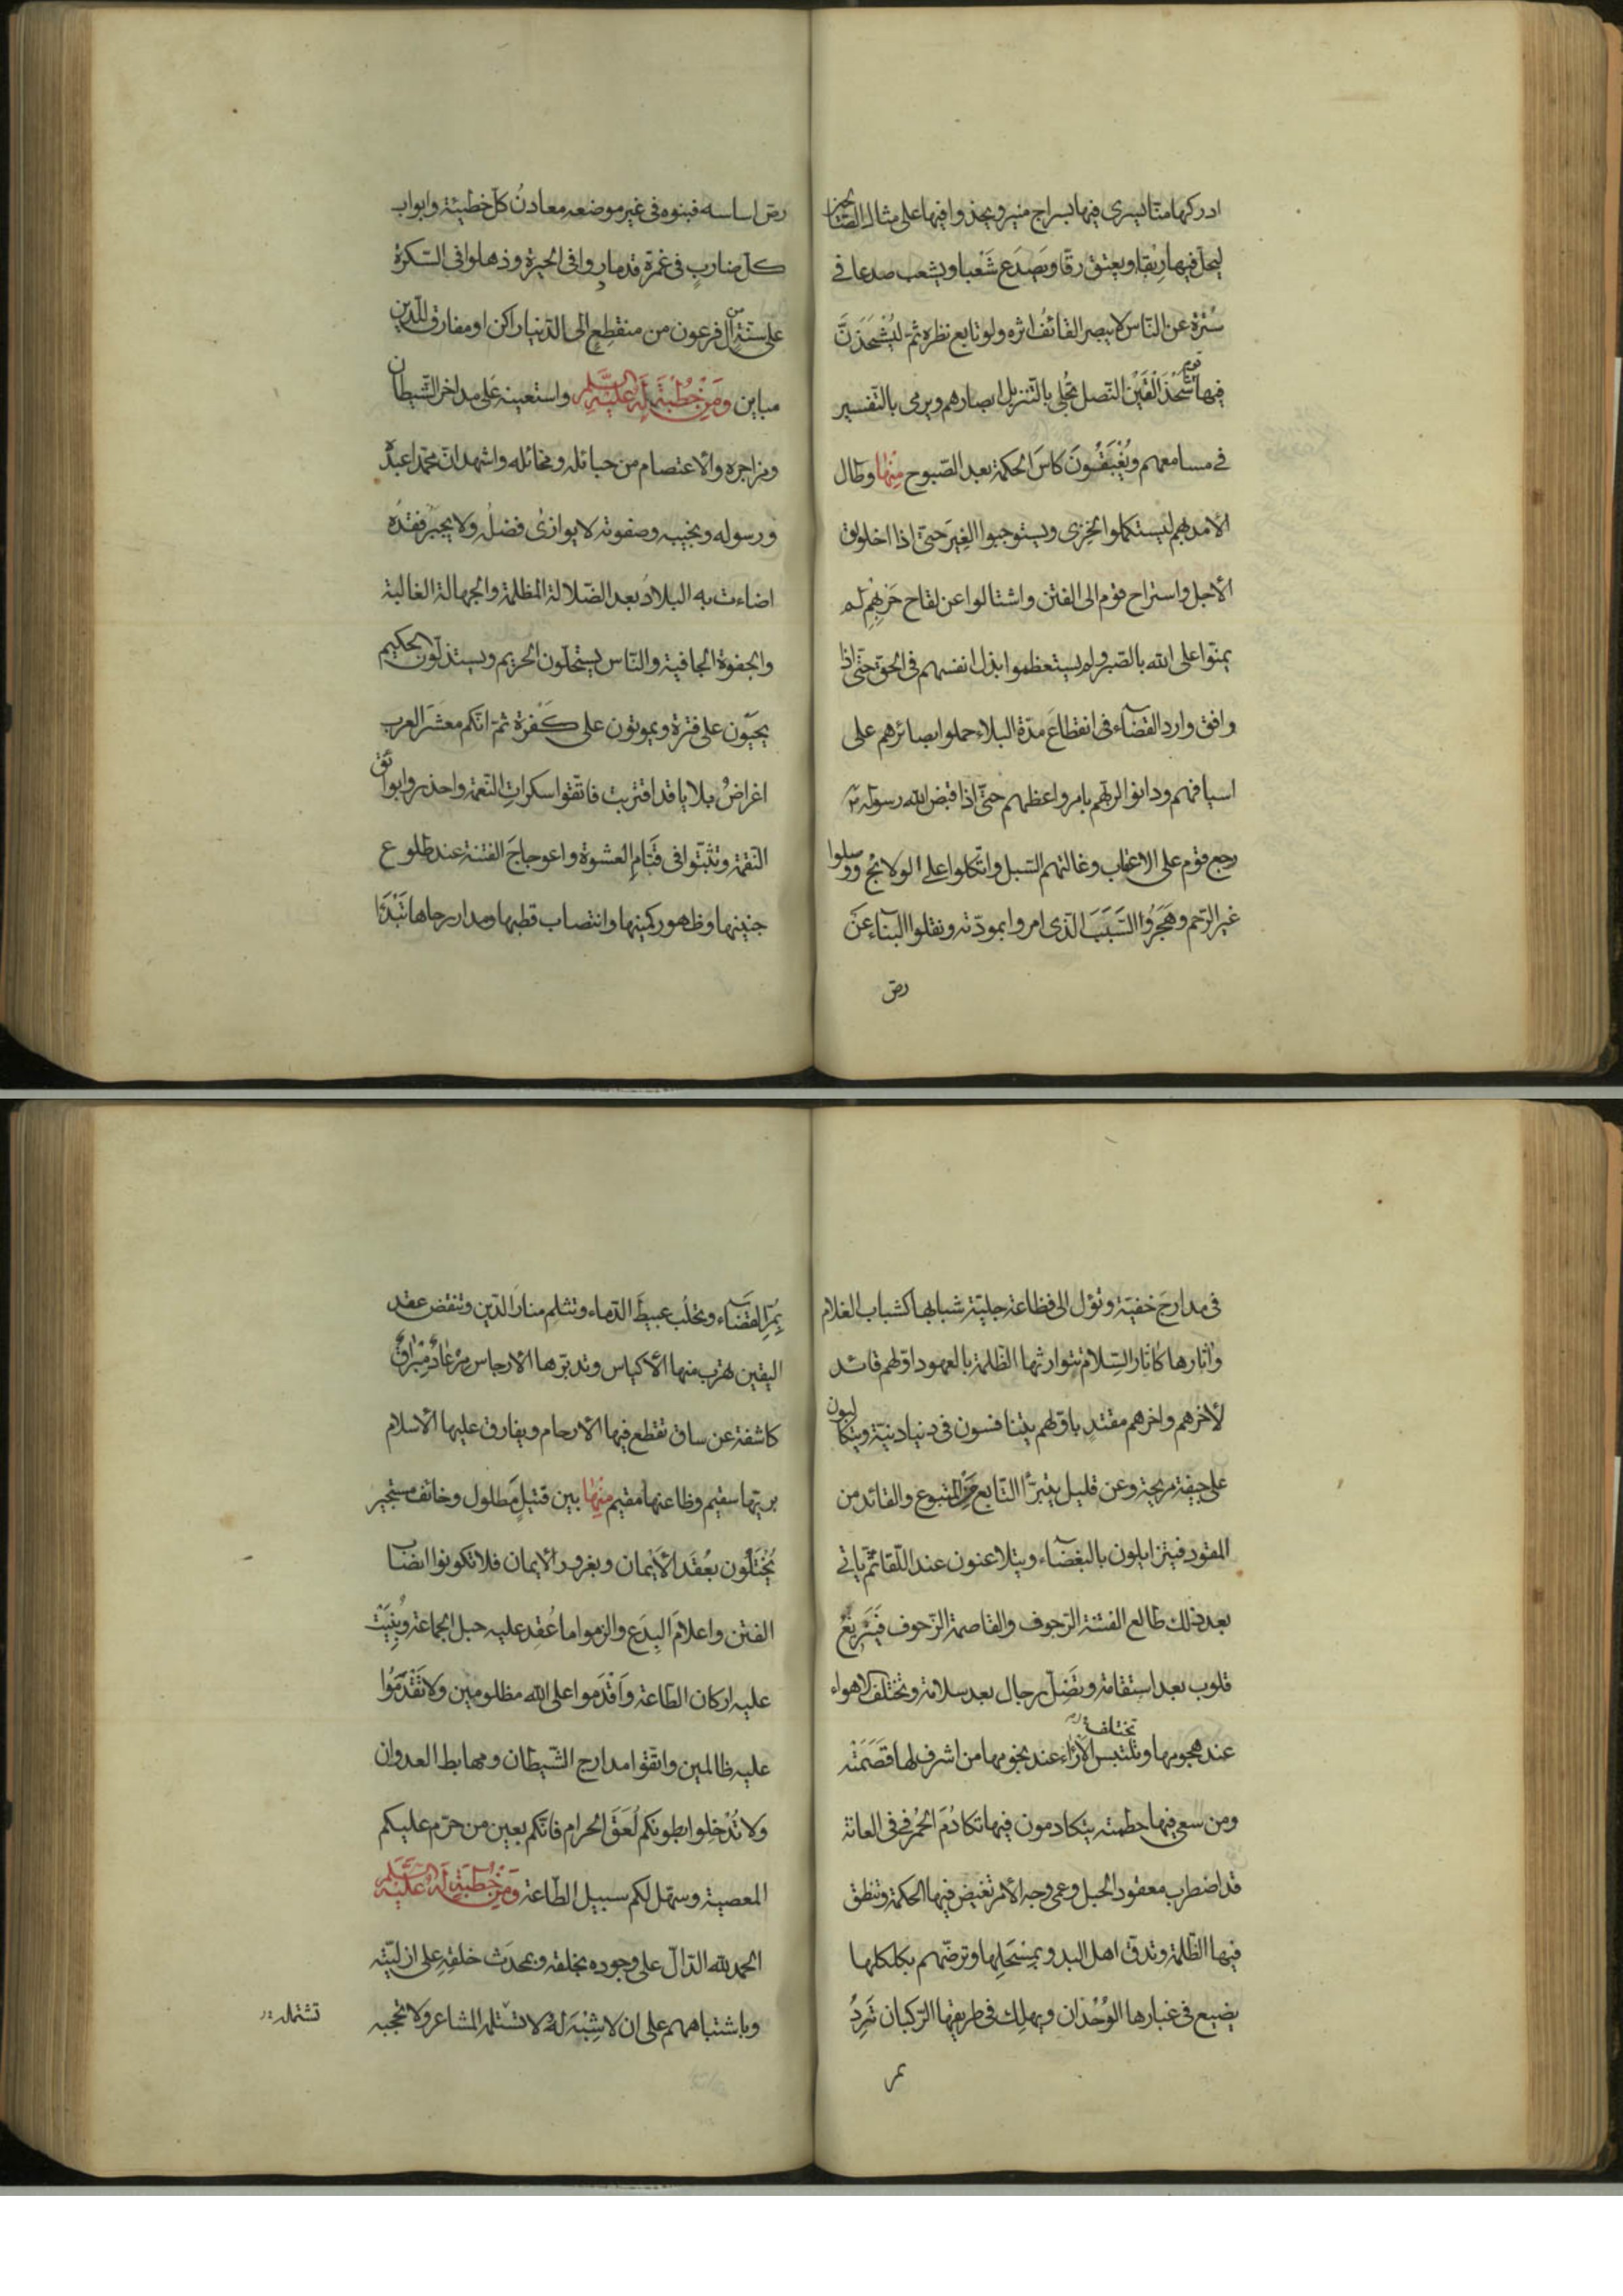 ادركها منّا يسرى فيها بسراج منير ويحذوا فيها على مثال الصّالحين
ليحلّ فيها رِبْقا ويعتق رقّا ويَصْدَع شَعْبا ويشعب صدعا فى
سُتْرة عن النّاس لا يبصر القائفُ اثره ولو تابع نظره ثمّ ليُشْحَذَنّ
فيها قوم شَحْذَ الْقَيْنِ النّصل تُجلى بالتّنزيل ابصارهم ويرمى بالتّفسير
فى مسامعهم ويُغْبَقُونَ كاسَ الحكمة بعد الصّبوح مِنْها وطال
الامد بهم ليستكملوا الخِزى ويستوجبوا الغِيَر حتى اذا اخلولق
الأجل واستراح قوم الى الفتن واشتالوا عن لقاح حَرْبِهِم لم
يمنّوا على الله بالصّبر ولم يستعظموا بذل انفسهم فى الحقّ حتّى اذا
وافق وارد القضاء فى انقطاعَ مدّة البلاء حملوا بصائرهم على
اسيافهم ودانوا لربّهم بامر واعظهم حتّى اذا قبض الله رسوله ص
رجع قوم على الاعقاب وغالتهم السّبل واتّكلوا على الولائج ووصلوا
غير الرّحم وهَجَرُوا السَّبَبَ الّذى امروا بمودّته ونقلوا البناء عَن
رصّ
رصّ اساسه فبنوه فى غير موضعه معادنُ كلّ خطيئة وابواب
كلّ ضاربٍ فى غمرة قد ماروا فى الحيرة وذهلوا فى السّكرة
على سنّة من آل فرعون من منقطعٍ الى الدّنيا راكن او مفارق للدّين
مباين وَمِنْ خُطْبَةٍ لَهُ عَلَيْهِ السَّلم واستعينه على مداحر الشّيطان
ومزاجره والاعتصام من حبائله ومخاتله واشهد انّ محمّدا عبده
ورسوله ونجيبه وصفوته لا يوازى فضلُه ولا يجبَر فقدُه
اضاءت به البلادُ بعد الضّلالة المظلمة والجهالة الغالبة
والجفوة الجافية والنّاس يستحلّون الحريم ويستذلّون الحكيم
يحيَون على فترة ويموتون على كَفْرة ثمّ انّكم معشَر العرب
اغراضُ بلايا قد اقتربت فاتّقوا سكراتِ النّعمة واحذروا بوائق
النّقمة وتثبّتوا فى قَتَامِ العشوة واعوجاجَ الفتنة عند طلوع
جنينها وظهور كمينها وانتصاب قطبها ومدار رحاها تَبْدَءُ
فى مدارجَ خفيّة وتؤل الى فظاعة جليّة شبابها كشباب الغلام
وآثارها كآثار السِّلام تتوارثها الظّلمة بالعهود اوّلهم قائد
لأخرهم واخرهم مقتدٍ باوّلهم يتنافسون فى دنيا دنيّة ويتكالبون
على جيفة مريحة وعن قليل يتبرّأ التّابع مِن المتبوع والقائد من
المقود فيتزايلون بالبغضاء ويتلاعنون عند اللّقا ثمّ ياتى
بعد ذلك طالع الفتنة الرّجوف والقاصمة الزّحوف فَتَزِيغُ
قلوب بعد استقامة وتَضِلّ رجال بعد سلامة وتختلف الاهواء
تختلف
عند هجومها وتلتبس الآراء عند نجومها من اشرف لها قَصَمَتْه
ومن سعى فيها حطمته يتكادمون فيها تكادُمَ الحُمُر فى العانة
قد اضطرب معقود الحبل وعمى وجه الأمر تغيض فيها الحكمة وتنطق
فيها الظّلمة وتدقّ اهل البدو بِمِسْحَلِها وترضّهم بكلكلها
يضيع فى غبارها الوُحْدَان ويهلِك فى طريقها الرّكبان تَرِدُ
بمر
بِمُرّ القضاء وتحلُب عبيطَ الدّماء وتثلم منارَ الدّين وتنقض عقد
اليقين تهرب منها الأكياس وتدبّرها الأرجاس مِرْعادٌ مِبْراقٌ
كاشفة عن ساق تقطع فيها الأرحام ويفارق عليها الاسلام
بريّها سقيم وظاعنها مقيم مِنْها بين قتيلٍ مَطلول وخائف مستجير
يُخْتَلُون بعُقَد الأَيْمان وبغرور الايمان فلا تكونوا انصابَ
الفتن واعلامَ البِدَع والزموا ما عُقِد عليه حبل الجماعة وبُنِيَتْ
عليه اركان الطّاعة وَاَقْدَموا على الله مظلومين وَلا تَقْدَمُوا
عليه ظالمين واتّقوا مدارج الشّيطان ومهابط العدوان
وَلا تُدْخِلوا بطونكم لُعَقَ الحرام فانّكم بعين من حرّم عليكم
المعصية وسهّل لكم سبيل الطّاعة وَمِنْ خُطْبَةٍ لَهُ عَلَيْهِ السَّلم
الحمد لله الدّالّ على وجوده بخلقه وبمحدَث خلقِهِ على ازليّته
وباشتباههم على ان لا شِبْهَ لهُ لا تستلمه المشاعر ولا تحجبه
تشتمله